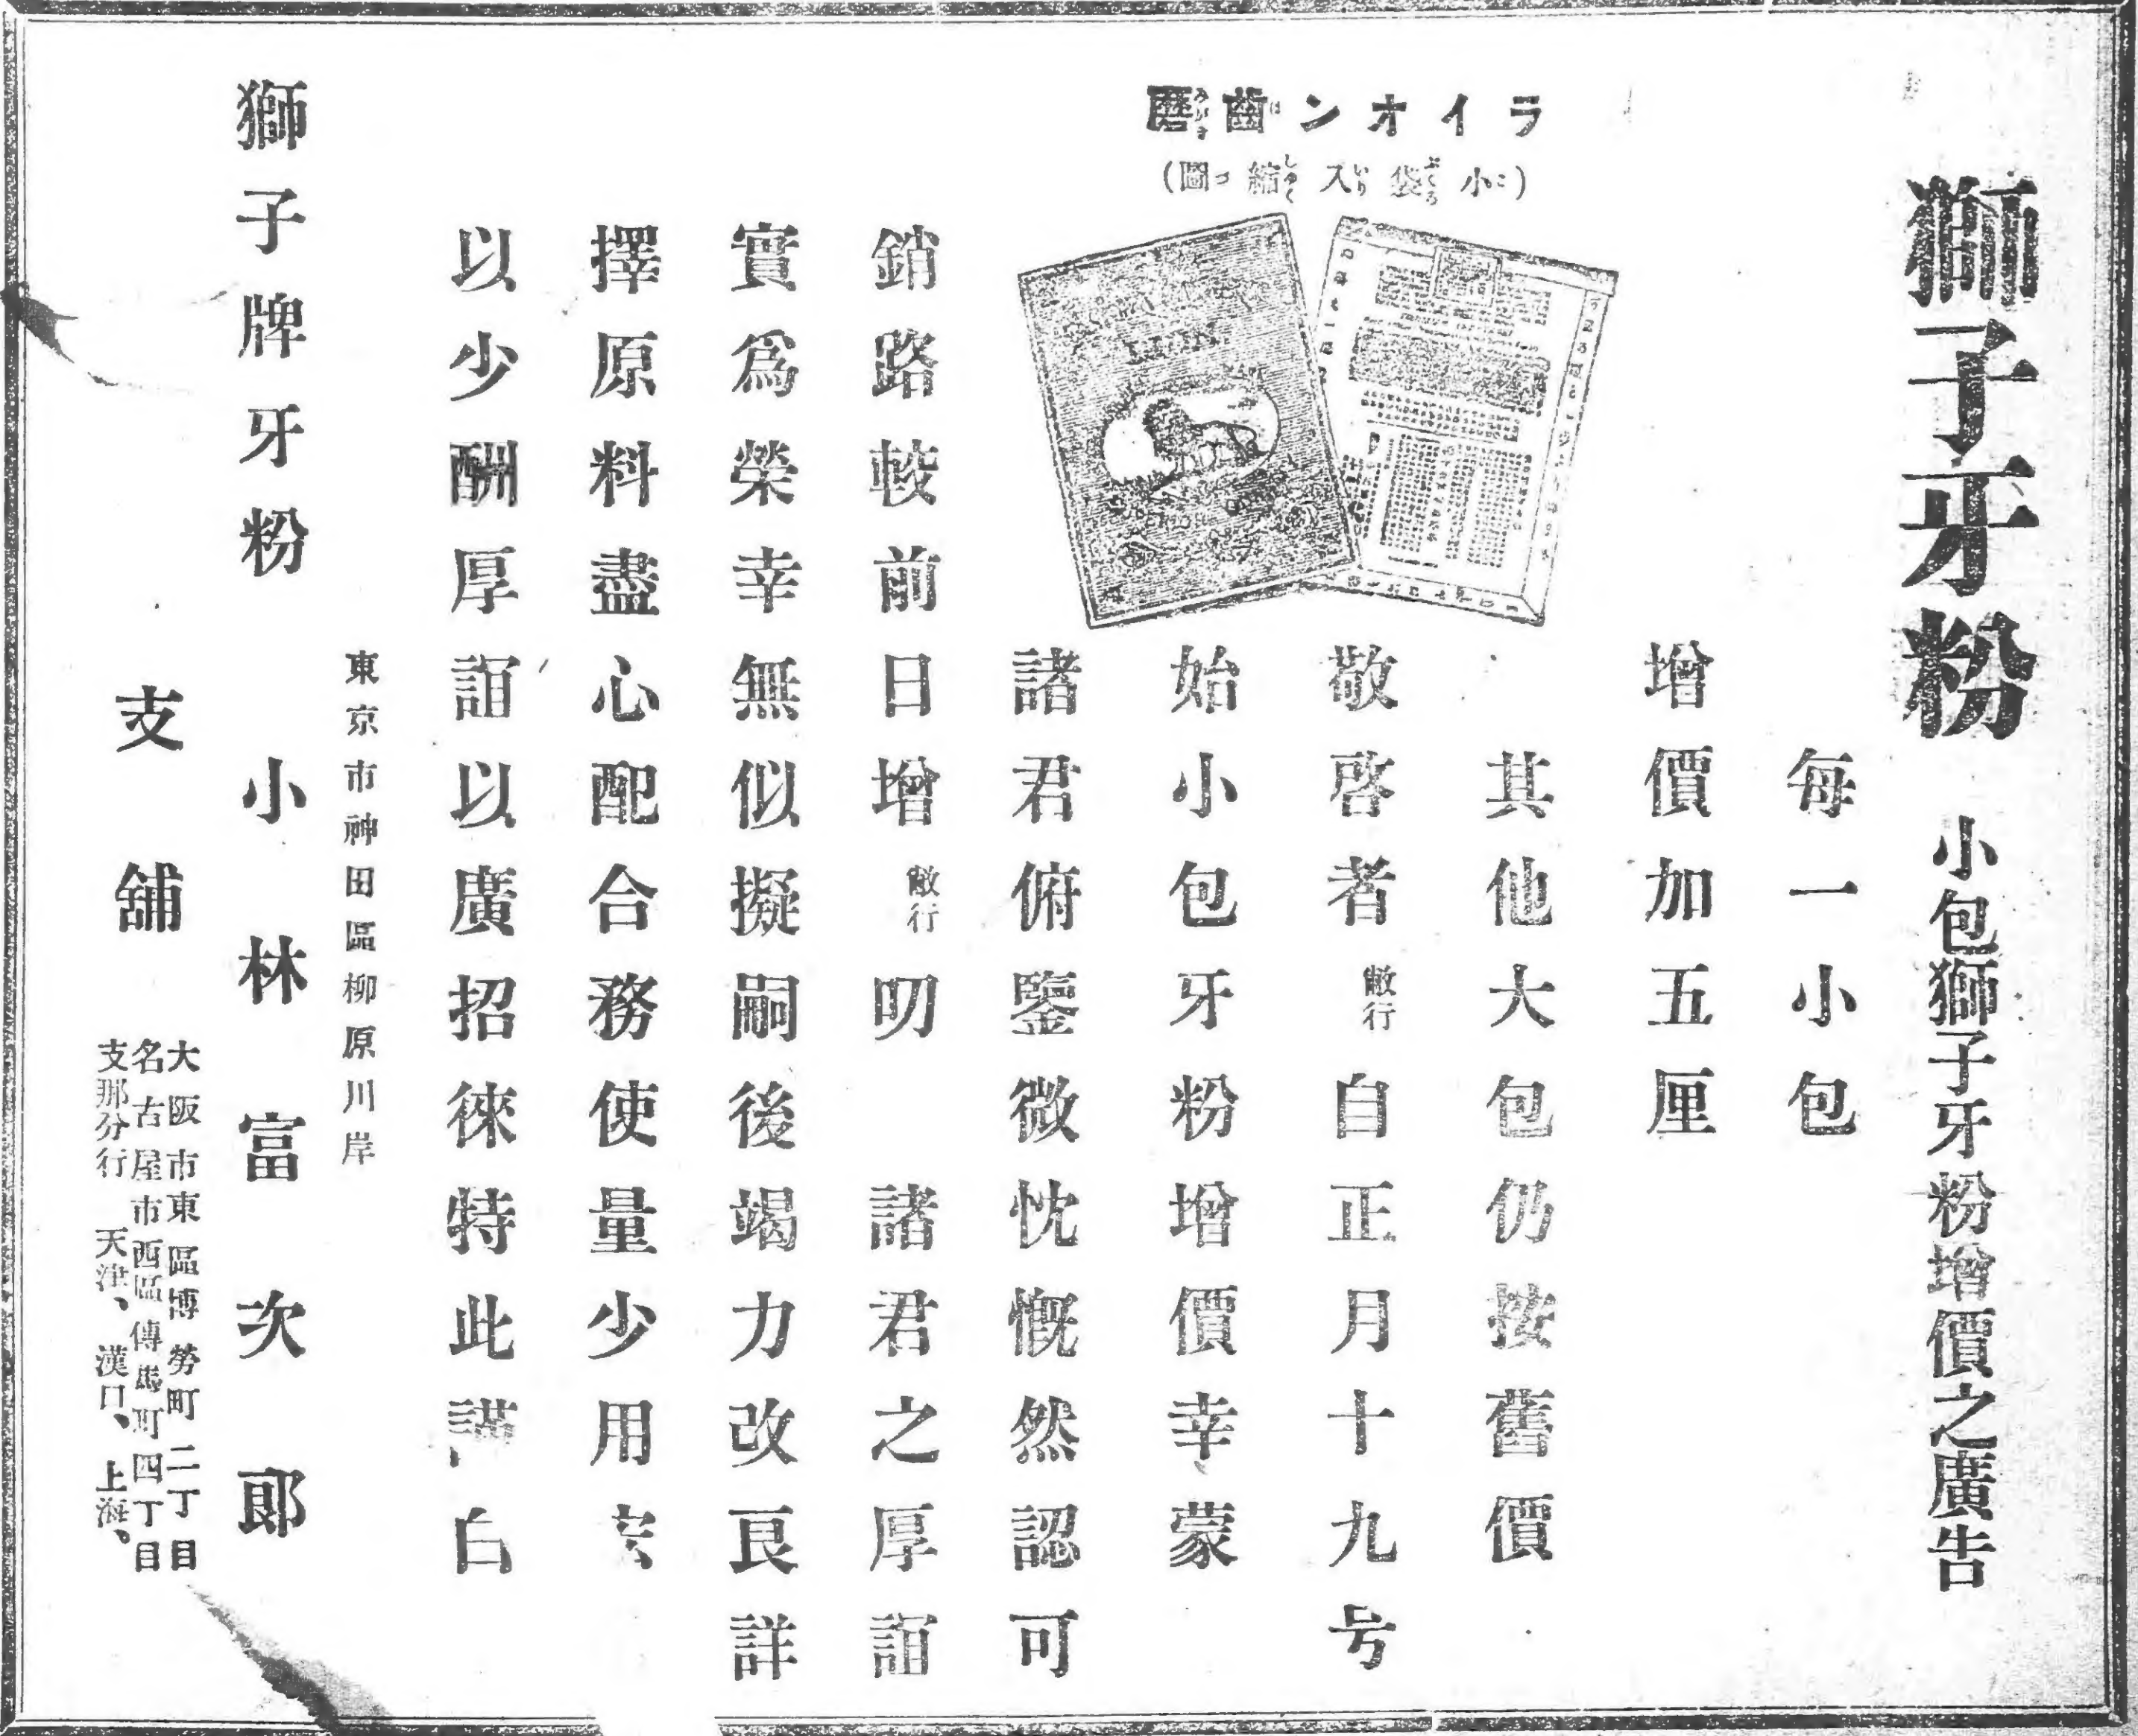 獅子牙粉 小包獅子牙粉增價之廣告
每一小包
增價加五厘
其他大包仍按舊價
ライオン齒磨
(小袋入縮圖)
LION
敬啓者敝行自正月十九号
始小包牙粉增價幸蒙
諸君俯鑒微忱慨然認可
銷路較前日增敝行叨 諸君之厚誼
實爲榮幸無似擬嗣後竭力改良詳
擇原料盡心配合務使量少用
以少酬厚誼以廣招徠特此謹白
東京市神田區柳原川岸
獅子牌牙粉 小林富次郞
支舖
大阪市東區博勞町二丁目
名古屋市西區傳馬町四丁目
支那分行 天津、漢口、上海、